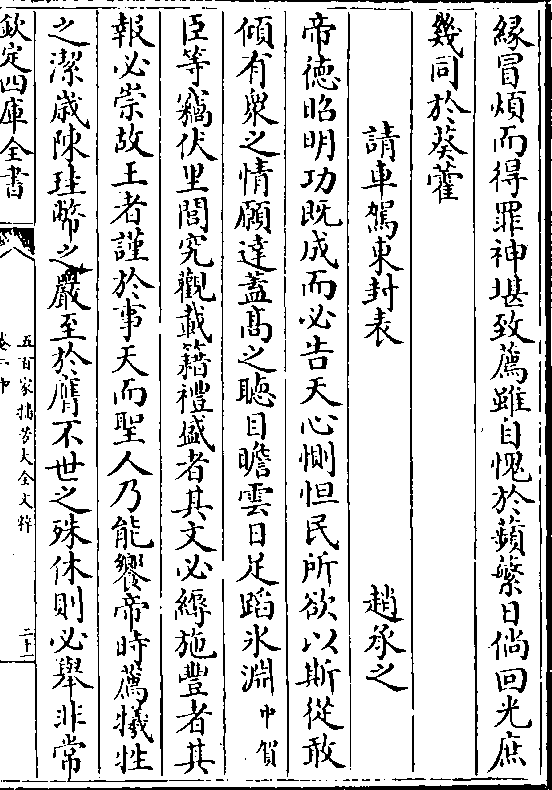 緣冒煩而得罪神堪致薦雖自愧於蘋蘩日倘回光庶
幾同於葵藿
請車駕東封表
趙承之
帝德昭明功既成而必告天心惻怛民所欲以斯從敢
傾有衆之情願達蓋髙之聴目瞻雲日足蹈氷淵中賀
臣等竊伏里閭究觀載籍禮盛者其文必縟施豐者其
報必崇故王者謹於事天而聖人乃能饗帝時薦犠牲
之潔嵗陳珪幣之嚴至於膺不世之殊休則必舉非常
欽定四庫全書
五百家播芳大全文粹
卷一中
二十